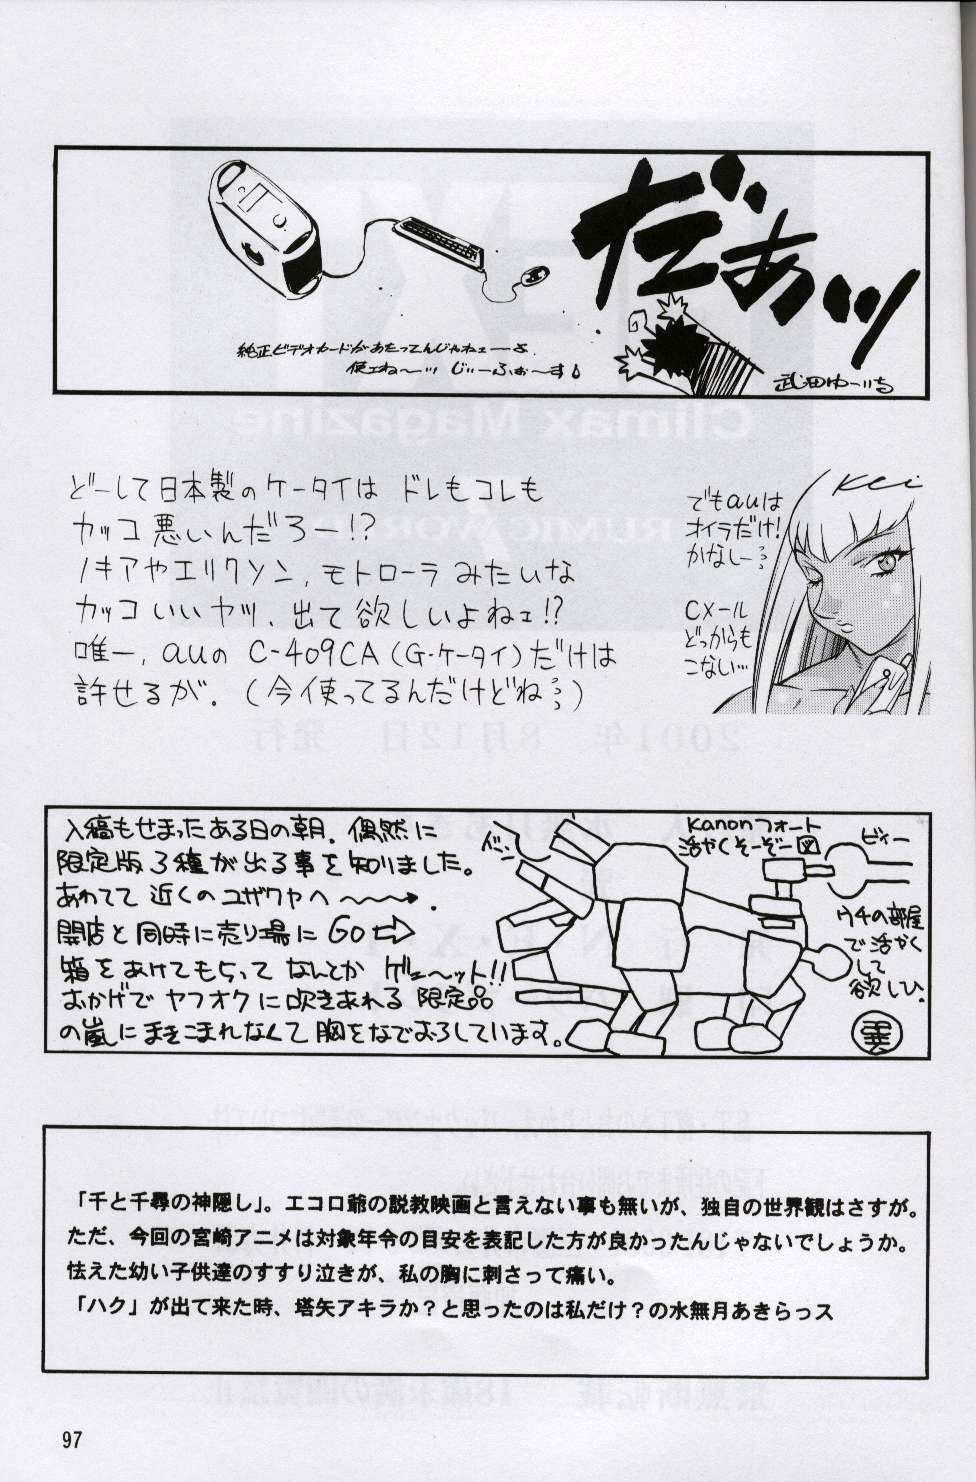 だぁッ
純正ビデオカードがあたってんじゃねェーよ
使えね〜ッ じぃーふぉーす
武田ゆーいち
どーして日本製のケータイは ドレもコレも
カッコ悪いんだろー!?
ノキアやエリクソン, モトローラ みたいな
カッコいいヤツ, 出て欲しいよねェ!?
唯一, auの C-409CA (G・ケータイ) だけは
許せるが. (今使ってるんだけどね…)
Kei
でもauは
オイラだけ!
かなしー…
Cメール
どっからも
こない…
入稿もせまったある日の朝. 偶然に
限定版3種が出る事を知りました。
あわてて 近くのユザワヤへ
開店と同時に売り場に GO
箱をあけてもらって なんとか ゲェ〜ット!!
おかげで ヤフオクに吹きあれる 限定品
の嵐にまきこまれなくて 胸をなでおろしています。
Kanonフォート
活やくそーぞー図
ビィー
ウチの部屋
で活やく
して
欲しひ.
「千と千尋の神隠し」。エコロ爺の説教映画と言えない事も無いが、独自の世界観はさすが。
ただ、今回の宮崎アニメは対象年令の目安を表記した方が良かったんじゃないでしょうか。
怯えた幼い子供達のすすり泣きが、私の胸に刺さって痛い。
「ハク」が出て来た時、塔矢アキラか？と思ったのは私だけ？の水無月あきらっス
97